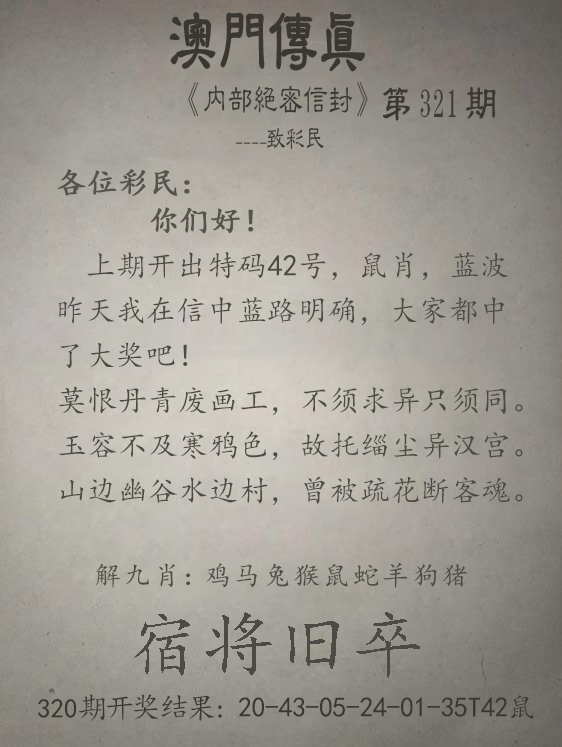 澳門傳真
《内部絕密信封》第321期
----致彩民
各位彩民：
你们好！
上期开出特码42号，鼠肖，蓝波
昨天我在信中蓝路明确，大家都中
了大奖吧！
莫恨丹青废画工，不须求异只须同。
玉容不及寒鸦色，故托缁尘异汉宫。
山边幽谷水边村，曾被疏花断客魂。
解九肖：鸡马兔猴鼠蛇羊狗猪
宿将旧卒
320期开奖结果：20-43-05-24-01-35T42鼠